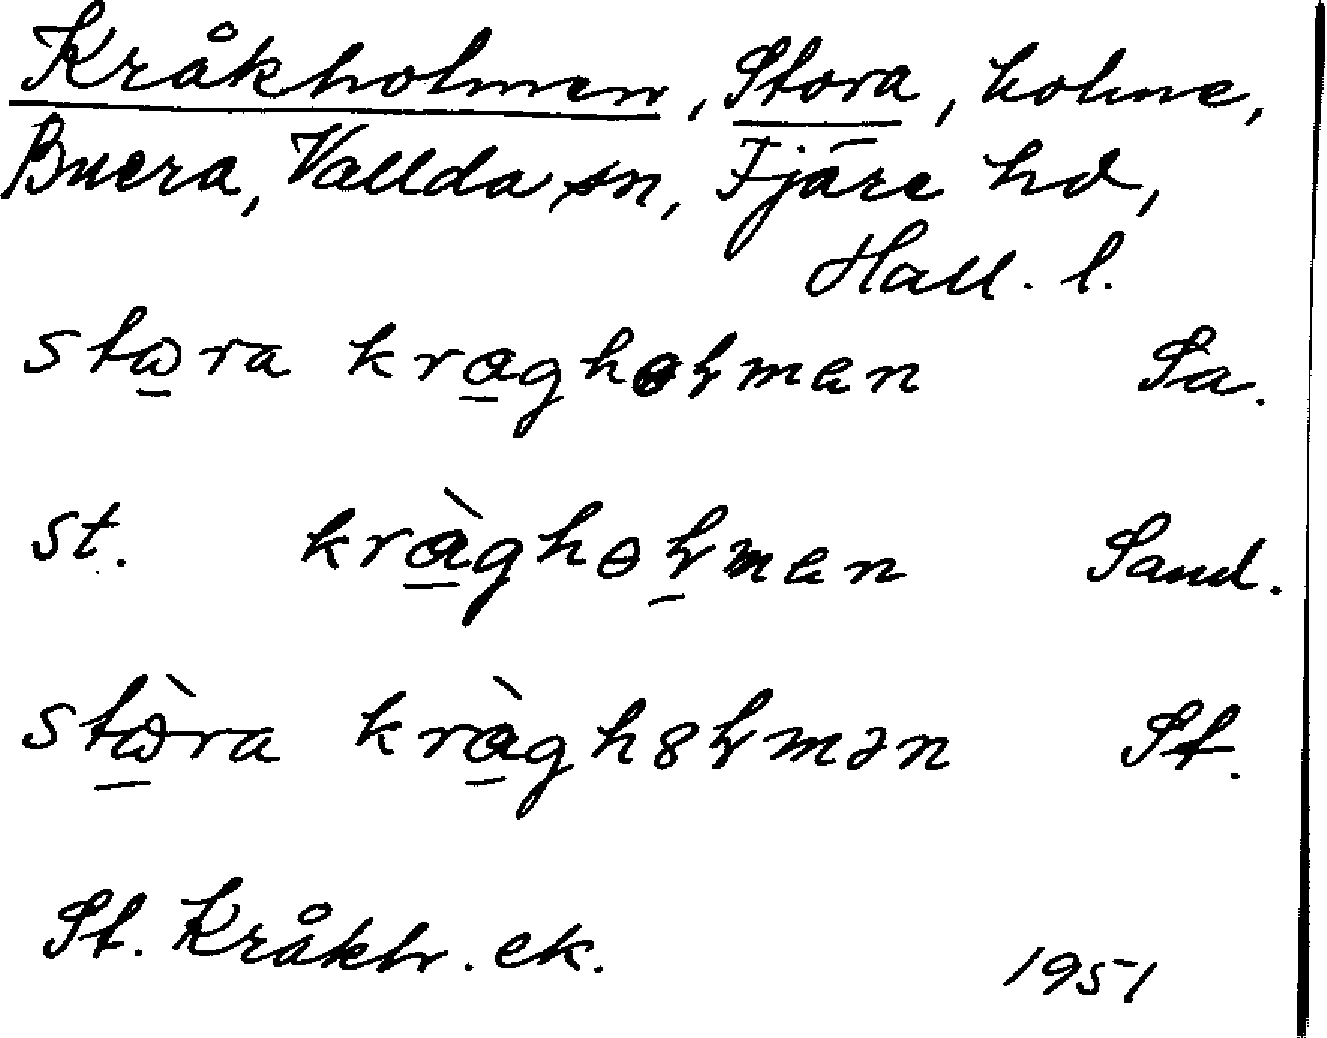 Kråkholmen, Stora, holme,
Buera, Vallda sn, Fjäre hd,
Hall. l.
stɷra kragholman Sa.
st. kràghoɫman Sand.
stɷ̀ra kràgh8ɫmən St.
St. Kråkh. ek. 1951